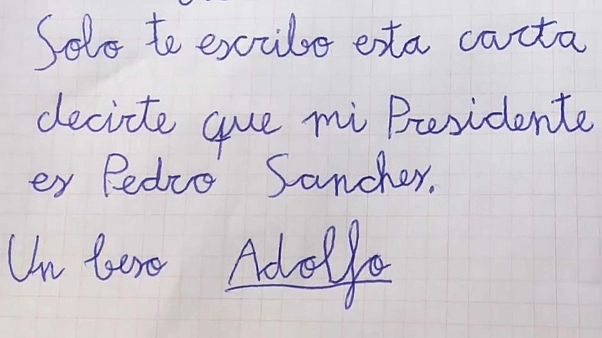 Solo te escribo esta carta
decirte que mi Presidente
es Pedro Sanches.
Un beso Adolfo